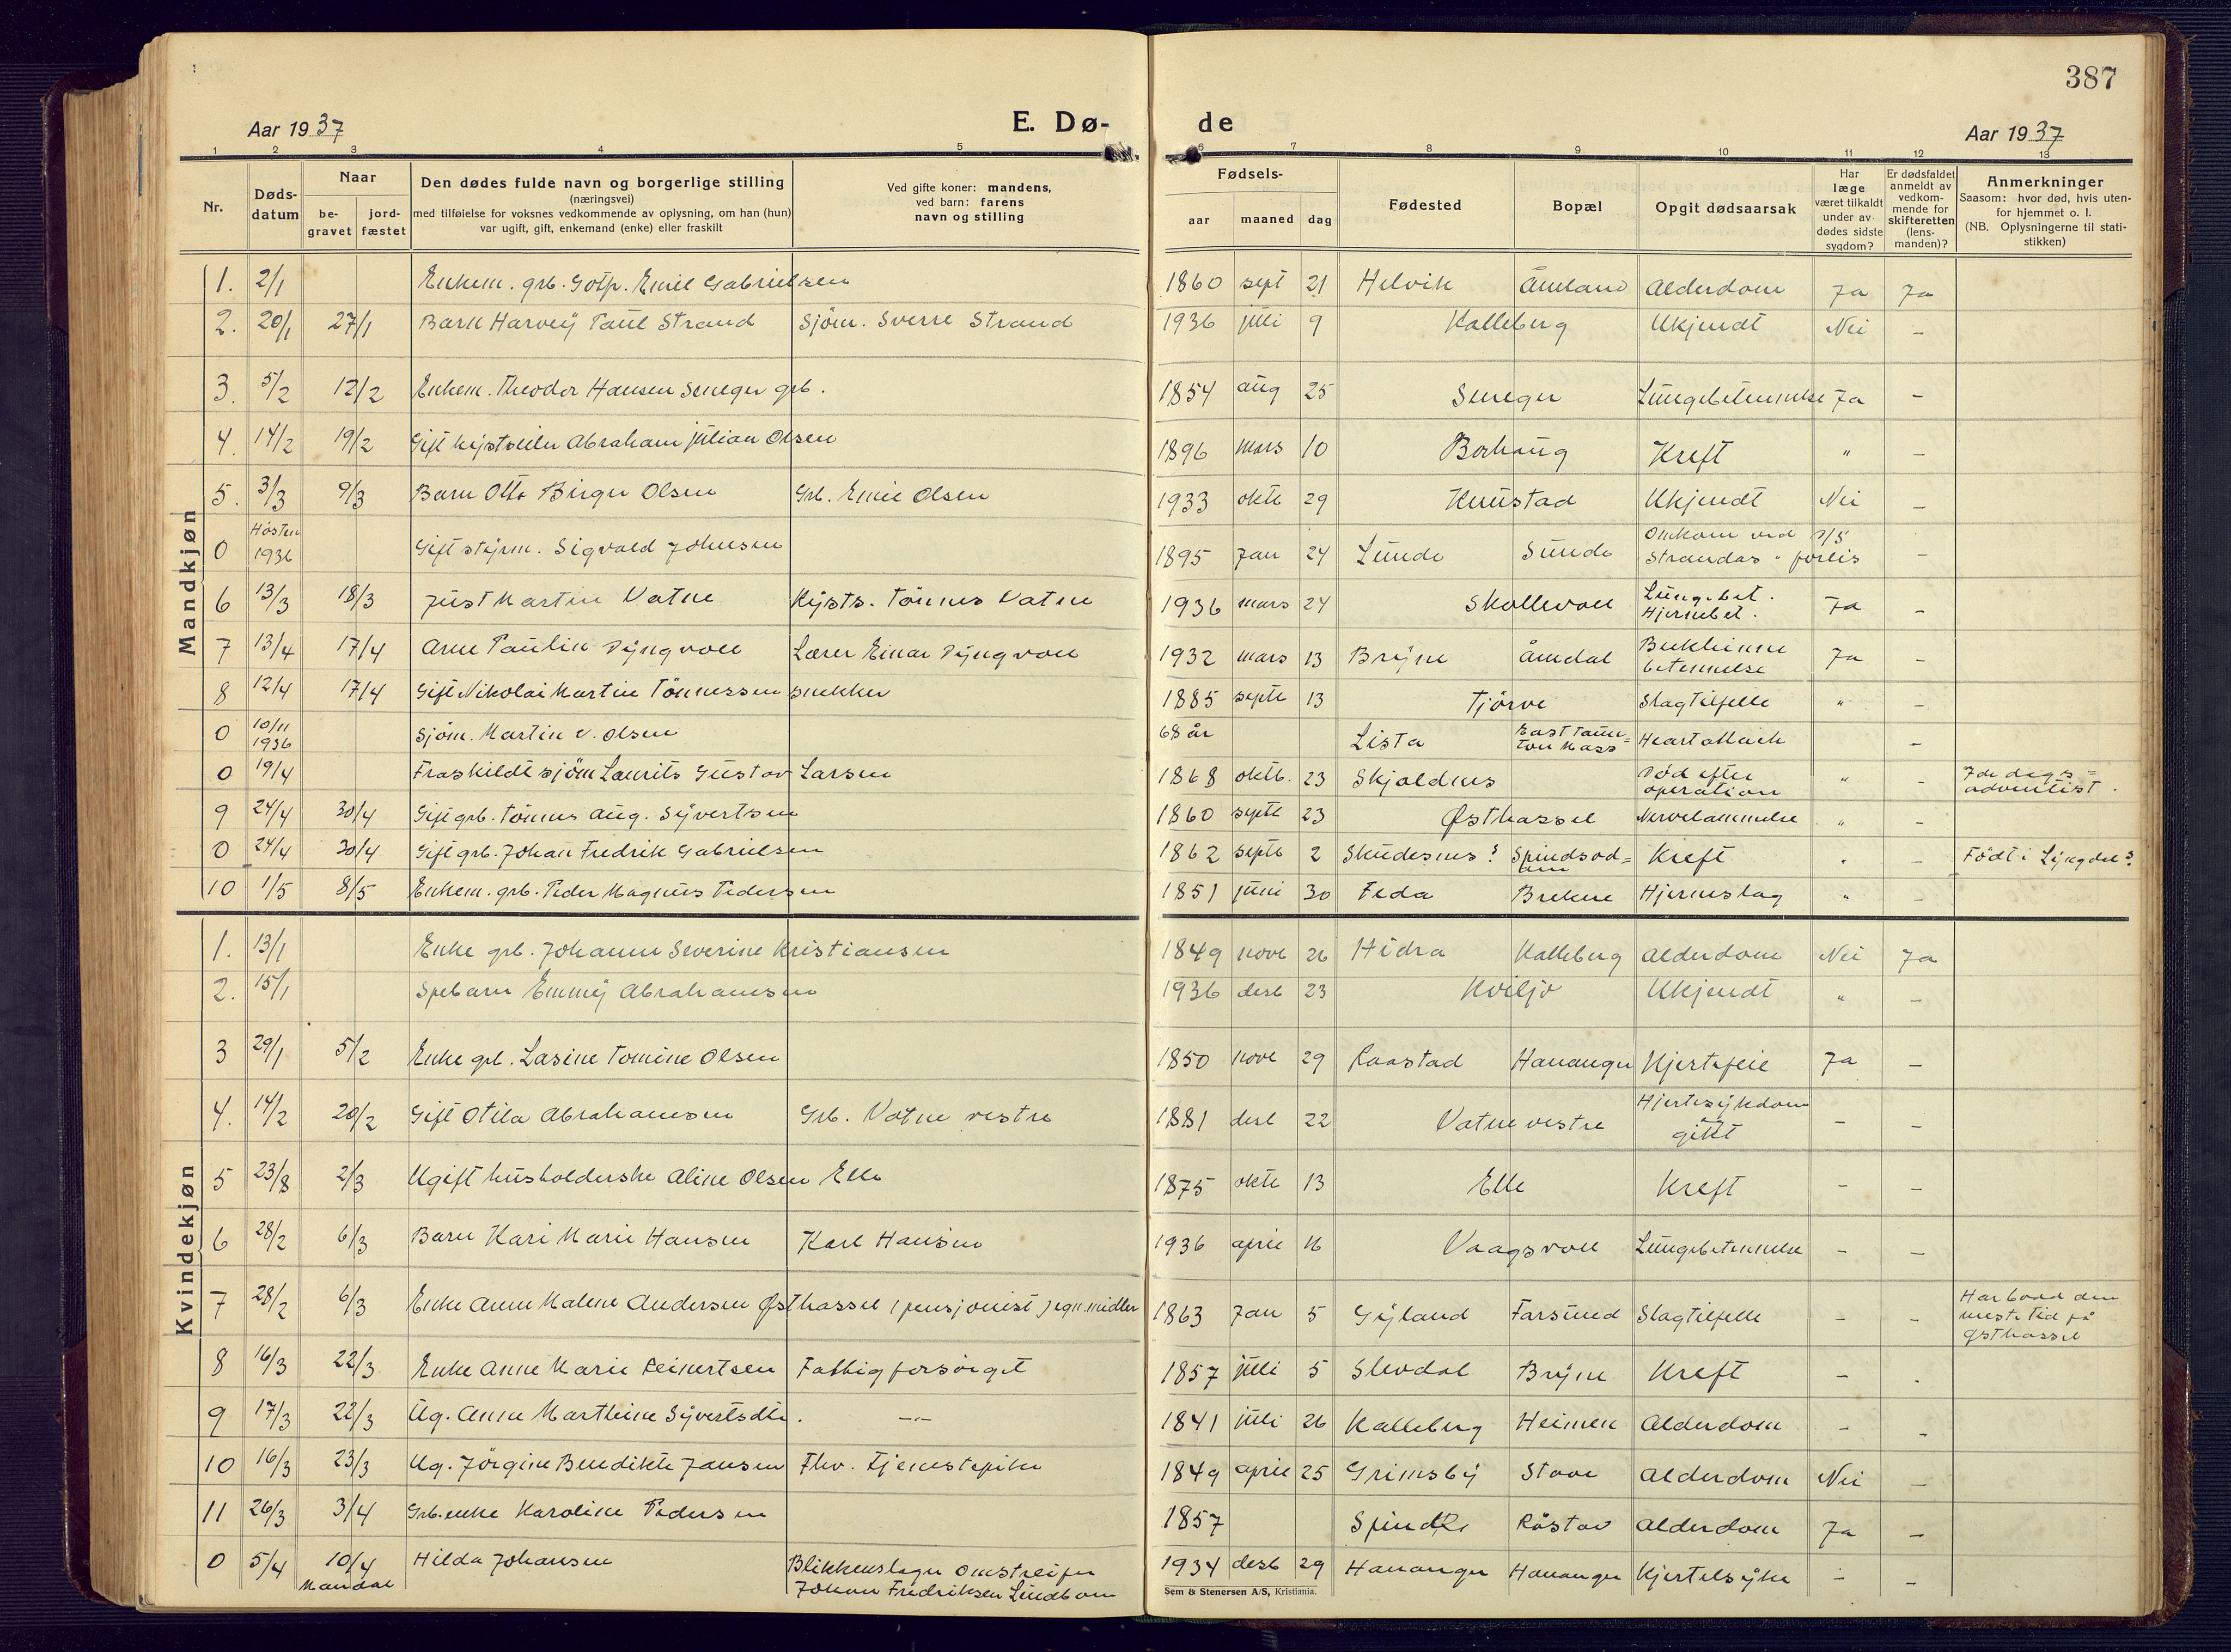 387
Aar 1937 E. Dø- de Aar 1937
1 2 3 4 5 6 7 8 9 10 11 12 13
Nr.
Døds-
datum
Naar
be-
gravet
jord-
fæstet
Den dødes fulde navn og borgerlige stilling
(næringsvei)
med tilføielse for voksnes vedkommende av oplysning, om han (hun)
var ugift, gift, enkemand (enke) eller fraskilt
Ved gifte koner: mandens,
ved barn: farens
navn og stilling
Fødsels-
aar maaned dag
Fødested
Bopæl
Opgit dødsaarsak
Har
læge
været tilkaldt
under av-
dødes sidste
sygdom?
Er dødsfaldet
anmeldt av
vedkom-
mende for
skifteretten
(lens-
manden)?
Anmerkninger
Saasom: hvor død, hvis uten-
for hjemmet o. l.
(NB. Oplysningerne til stati-
stikken)
Mandkjøn
1. 2/1 Enkem. grb. Gotf. Emil Gabrielsen 1860 sept 21 Helvik Åmland Alderdom Ja Ja
2. 20/1 27/1 Barn Harvey Paul Strand Sjöm. Sverre Strand 1936 juli 9 Kalleberg Ukjendt Nei –
3. 5/2 12/2 Enkem. Theodor Hansen Smeger grb. 1854 aug 25 Smeger Lungebetennelse Ja –
4. 14/2 19/2 Gift Abraham Julian Olsen 1896 mars 10 Borhaug Kreft " –
5. 3/3 9/3 Barn Otto Birger Olsen Grb. Emil Olsen 1933 oktb 29 Knustad Ukjendt Nei –
0 Høsten
1936 Gift styrm. Sigvald Johnsen 1895 Jan 24 Lunde Sunde Omkom ved D/S
Strandas" forlis –
6 13/3 18/3 Just Martin Vatne Kysts. Tönnes Vatne 1936 mars 24 Skollevoll Lungebet.
Hjernebet. Ja –
7 13/4 17/4 Arne Paulin Dyngvoll Lærer Einar Dyngvoll 1932 mars 13 Bryne Åmdal Bukhinne
betennelse Ja –
8 12/4 17/4 Gift Nikolai Martin Tönnessen snekker 1885 septb 13 Tjörve Slagtilfelle " –
0 10/11
1936 Sjöm. Martin v. Olsen 68 år Lista East Taun-
ton Mass Heart attack –
0 19/4 Fraskildt sjöm Laurits Gustav Larsen 1868 oktb. 23 Skjoldnes Död efter
operation " – 7de dags-
adventist.
9 24/4 30/4 Gift grb. Tönnes Aug. Syvertsen 1860 septb 23 Østhassel Nervelammelse " –
0 24/4 30/4 Gift grb. Johan Fredrik Gabrielsen 1862 septb 2 Skudesnes? Kreft " – Født i Lyngdal?
10 1/5 8/5 Enkem. grb. Peder Magnus Pedersen 1851 juni 30 Feda Brekne Hjerneslag " –
Kvindekjøn
1. 13/1 Enke grb. Johanne Severine Kristiansen 1849 novb 26 Hidra Kalleberg Alderdom Nei Ja
2. 15/1 Spebarn Emmy Abrahamsen 1936 desb 23 Kviljo Ukjendt " –
3 29/1 5/2 Enke grb. Lasine Tomine Olsen 1850 novb 29 Raastad Hananger Hjertefeil Ja –
4. 14/2 20/2 Gift Otila Abrahamsen Grb. Vatne vestre 1881 desb 22 Vatne vestre Hjertesykdom
gikt – –
5 23/8 2/3 Ugift husholderske Aline Olsen Elle 1875 oktb 13 Elle Kreft – –
6 28/2 6/3 Barn Kari Marie Hansen Karl Hansen 1936 april 16 Vaagsvoll Lungebetennelse – –
7 28/2 6/3 Enke Anne Malene Andersen Østhassel (pensjonist) egn. midler 1863 Jan 5 Gyland Farsund Slagtilfelle – – Har bodd den
meste tid på
Østhassel
8 16/3 22/3 Enke Anne Marie Reinertsen Fattigforsörget 1857 juli 5 Skodal Bryne Kreft – .
9 17/3 22/3 Ug. Anne Marthine Syvertsdtr. –"– 1841 juli 26 Kalleberg Heimen Alderdom – –
10 16/3 23/3 Ug. Jörgine Bendikte Jansen Fhv. Tjenestepike 1849 april 25 Grimsby Stave Alderdom Nei –
11 26/3 3/4 Grb. enke Karoline Pedersen 1857 Spindle Råstad Alderdom Ja –
0 5/4 10/4
Mandal Hilda Johansen Blikkenslager Omstreifer
Johan Fredriksen Lindbom 1934 desb 29 Hananger Hananger Kjertelsyke – –
Sem & Stenersen A/S, Kristiania.